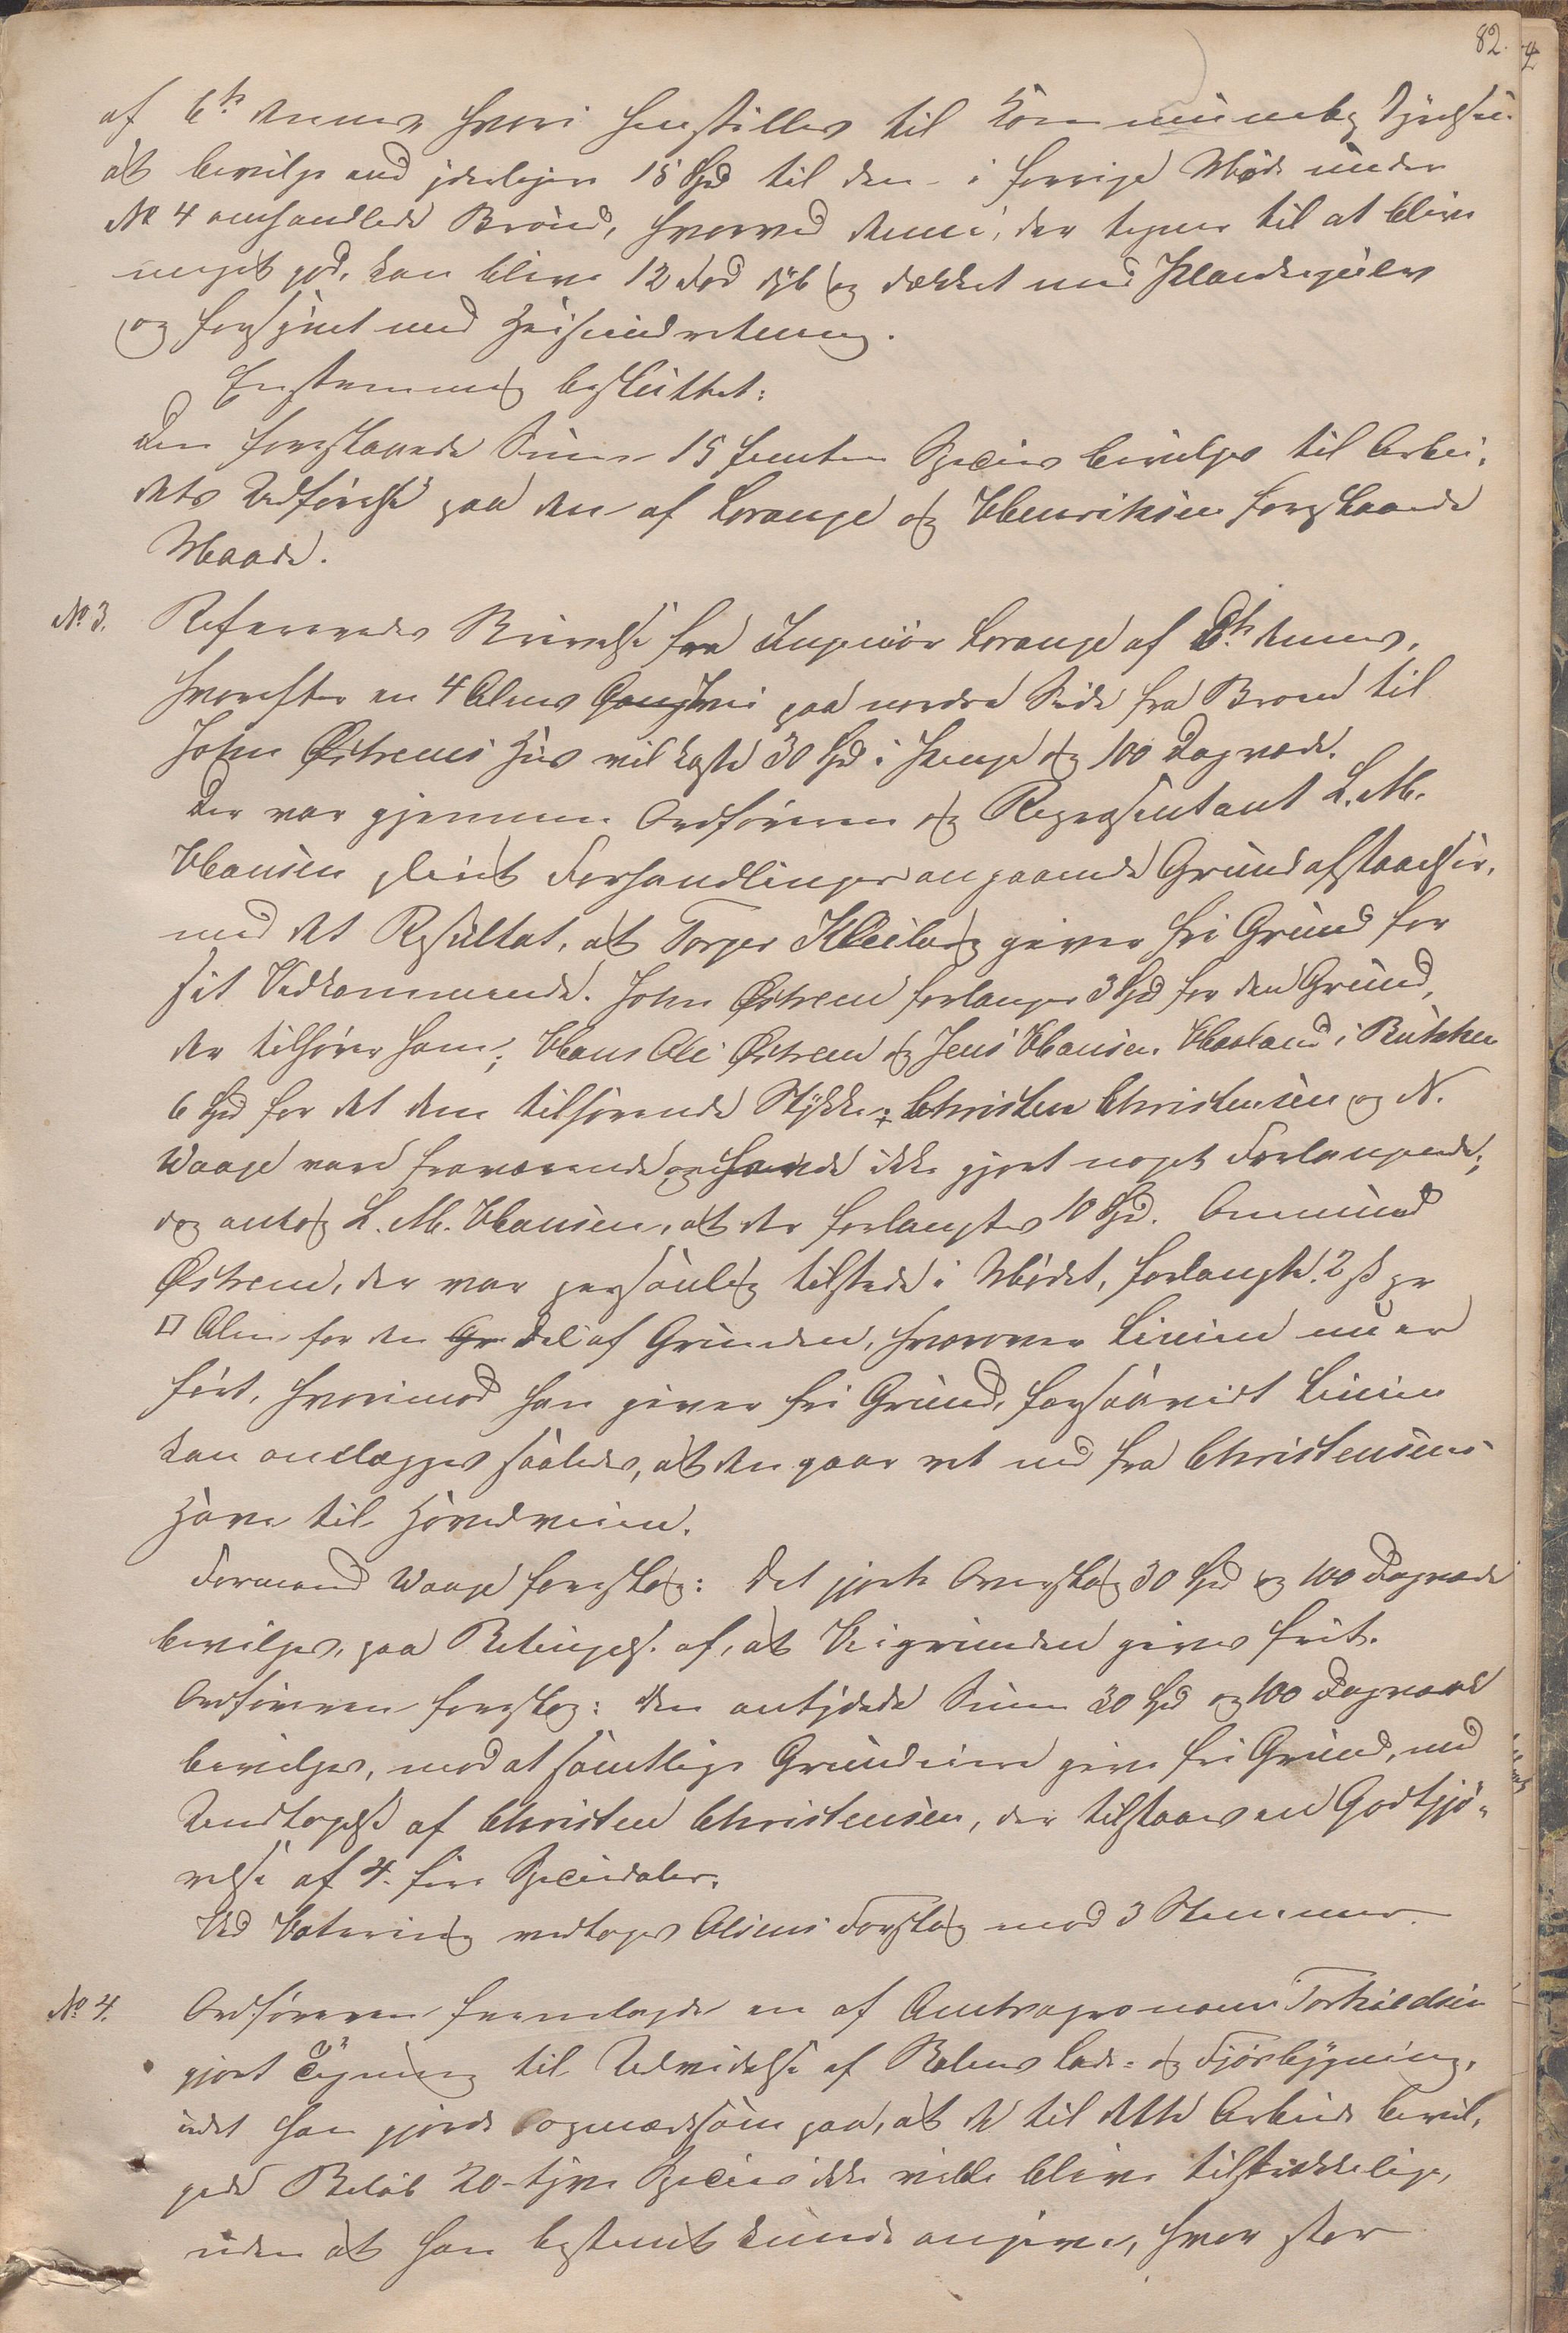 82.
af 6te dennes hvori henstilles til Kommunebestyrelsen
at bevilge end yderligere 15 Spd til den i forrige Møde under
No 4 omhandlede Brønd, hvorved denne, der tegner til at blive
meget god, kan blive 12 Fod dyb og dækket med Plankegulv
og forsynet med Heiseindretning.
Enstemmig besluttet:
Den foreslaaede Sum 15 femten Species bevilges til Arbei-
dets Udførelse paa den af Lorange og Henriksen foreslaaede
Maade.
No 3. Refereredes Skrivelse fra Ingeniør Lorange af 8de dennes,
hvorefter en 4 Alens Gangvei paa nordre Side fra Broen til
John Østrems Hus vil koste 30 Spd i Penge og 100 Dagværk.
Der var gjennem Ordføreren og Repræsentant L. M.
Hansen pleiet Forhandlinger angaaende Grundafstaaelsen,
med det Resultat, at Torger Kleiberg giver fri Grund for
sit Vedkommende. John Østrem forlanger 3 Spd for den Grund,
der tilhører ham; Hans Ole Østrem og Jens Hansen Haaland i Bukken
6 Spd for det dem tilhørende Stykke; Christen Christensen og N.
Waage vare fraværende og havde ikke gjort noget Forlangende;
dog antog L. M. Hansen, at der forlangtes 10 Spd. Ommund
Østrem, der var personlig tilstede i Mødet, forlangte 2 ß pr
□ Alen for den Gr Del af Grunden, hvorover Linien nu er
ført, hvorimod han giver fri Grund, forsaavidt Linien
kan omlægges saaledes, at den gaar ret ned fra Christensens
Have til Hovedveien.
Formand Waage foreslog: Det gjorte Overslag 30 Spd og 100 Dagværk
bevilges, paa Betingelse af, at Veigrunden gives frit.
Ordføreren foreslog: Den antydede Sum 30 Spd og 100 Dagværk
bevilges, mod at samtlige Grundeiere give fri Grund, med
Undtagelse af Christen Christensen, der tilstaaes en Godtgjø-
relse af 4 fire Speciedaler.
Ved Votering vedtoges Forslag mod 3 Stemmer.
No 4. Ordføreren fremlagde en af Amtsagronom Torkildsen
gjort Tegning til Udvidelse af Lade- og Fjøsbygning,
idet han gjorde opmærksom paa, at de til dette Arbeide bevil-
gede Beløb 20 tyve Species ikke vilde blive tilstrækkelige,
uden at han bestemt kunde angive, hvor stor